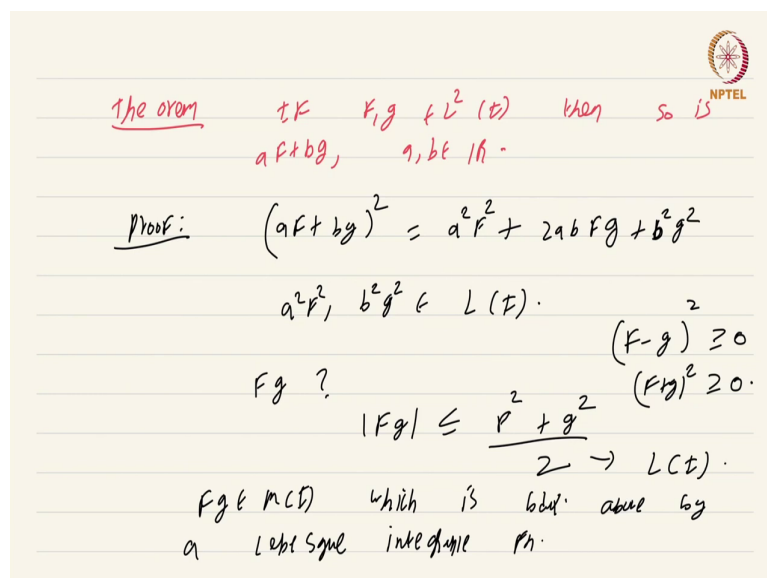 NPTEL
Theorem If F, g ∈ L² (I) then so is
aF + bg, a, b ∈ ℝ.
Proof: (aF + bg)² = a²F² + 2abFg + b²g²
a²F², b²g² ∈ L(I).
(F - g)² ≥ 0
Fg ? (F+g)² ≥ 0.
|Fg| ≤ (F² + g²)/2 → L(I).
Fg ∈ M(I) which is bdd. above by
a Lebesgue integrable Fn.